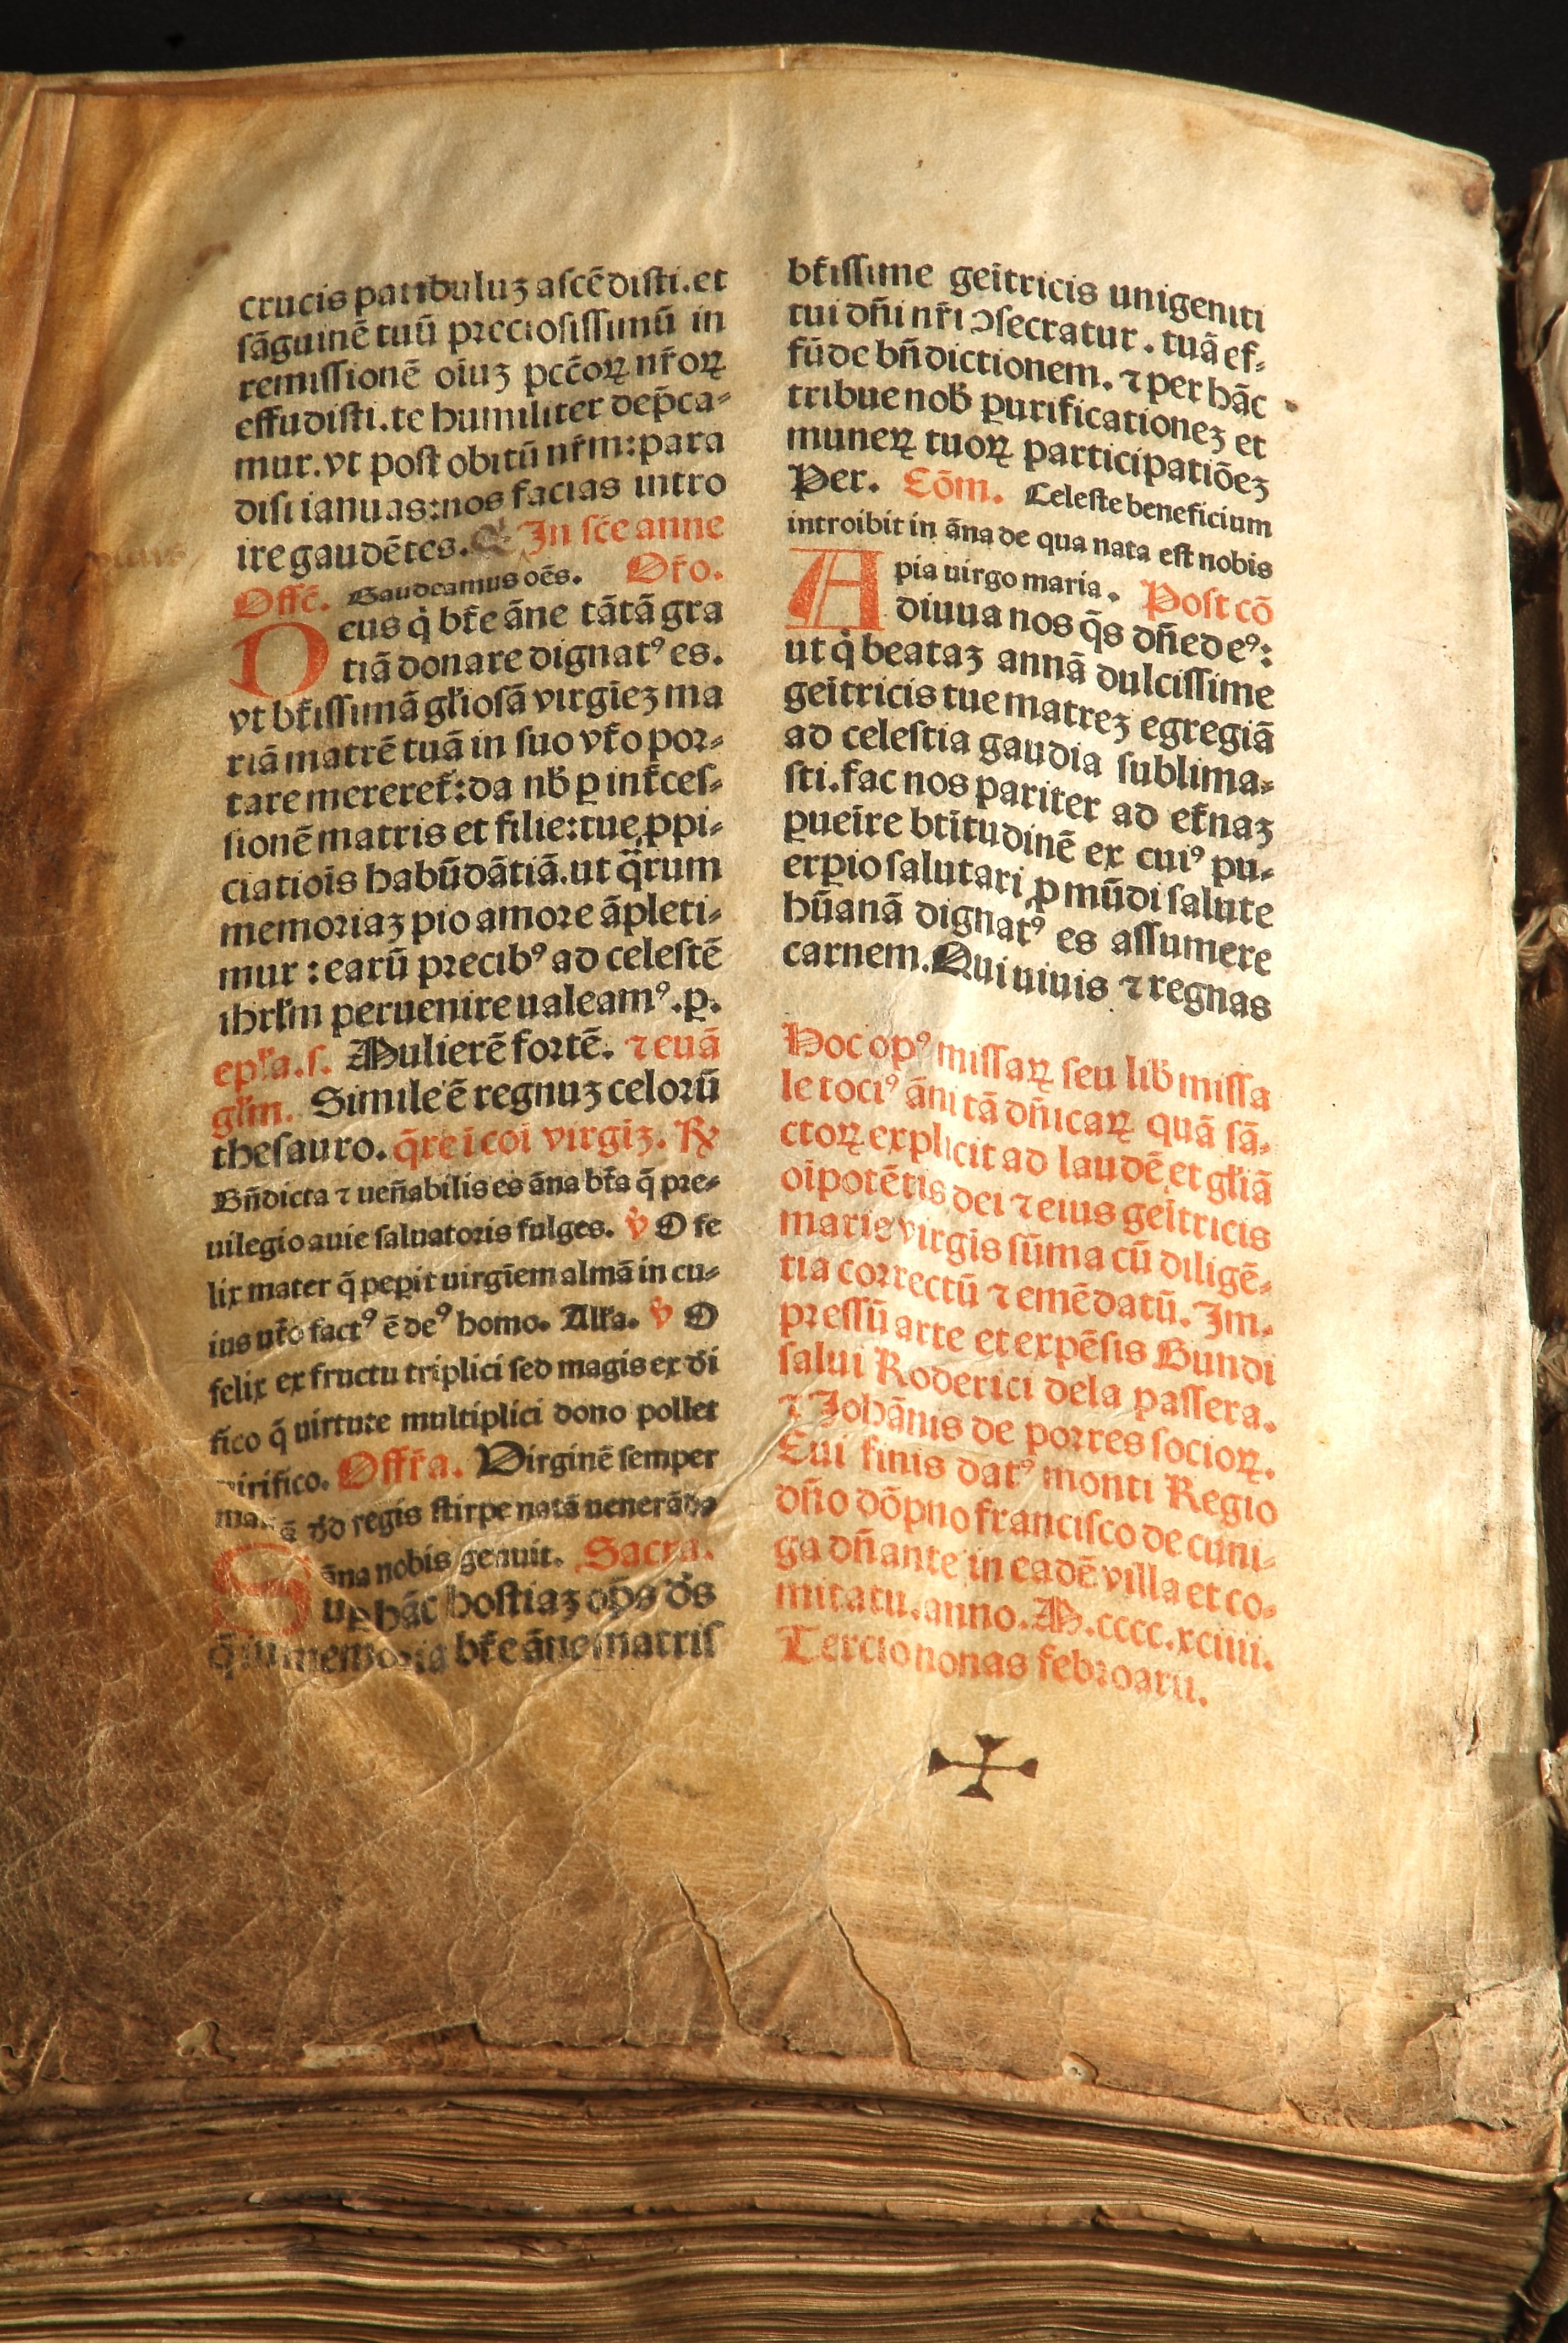 crucis patibuluꝫ aſcẽdiſti. et
ſãguinẽ tuũ precioſiſſimũ in
remiſſionẽ oĩuꝫ pcc̃oꝝ nr̃oꝝ
effudiſti. te humiliter dep̃ca-
mur. vt poſt obitũ nr̃m: para
diſi ianuas: nos facias intro
ire gaudẽtes. In ſc̃e anne
Offc̃. Gaudeamus oẽs. Or̃o.
Deus q̇ bt̃e ãne tãtã gra
tiã donare dignatꝰ es.
vt bt̃iſſimã gl̃ioſã virgĩeꝫ ma
riã matrẽ tuã in ſuo vt̃o por-
tare mereret̃: da nb̃ ꝑ int̃ceſ-
ſionẽ matris et filie: tue ꝓpi-
ciatiõis habũdãtiã. ut q̃rum
memoriaꝫ pio amore ãpleti-
mur: earũ precibꝰ ad celeſtẽ
ihrl̃m peruenire ualeamꝰ. ꝑ.
epl̃a. ſ. Mulierẽ fortẽ. ⁊ euã
gl̃m. Simile ẽ regnuꝫ celorũ
theſauro. q̃re i coĩ virgiꝫ. ℞
Bñdicta ⁊ ueñabilis es ãna bt̃a q̃ pre-
uilegio auie ſaluatoris fulges. ℣ O fe
lix mater q̃ peꝑit uirgĩem almã in cu-
ius ut̃o factꝰ ẽ deꝰ homo. All̃a. ℣ O
felix ex fructu triplici ſed magis ex d̃i
fico q̃ uirtute multiplici dono pollet
mirifico. Offr̃a. Virginẽ ſemper
mariã d̃d regis ſtirpe natã uenerãda
ãna nobis genuit. Sacra.
Suꝑ hãc hoſtiaꝫ op̃s d̃s
q̃ in memoria bt̃e ãne matriſ
bt̃iſſime geĩtricis unigeniti
tui dñi nr̃i ↄſecratur. tuã ef-
fũde bñdictionem. ⁊ per hãc
tribue nob̃ purificationeꝫ et
muneꝝ tuoꝝ participatiõeꝫ
Per. Cõm. Celeſte beneficium
introibit in ãna de qua nata eſt nobis
pia uirgo maria. Poſt cõ
Adiuua nos q̃s dñe deꝰ:
ut q̇ beataꝫ annã dulciſſime
geĩtricis tue matreꝫ egregiã
ad celeſtia gaudia ſublima-
ſti. fac nos pariter ad et̃naꝫ
ꝑueĩre bt̃itudinẽ ex cuiꝰ pu-
erꝑio ſalutari ꝓ mũdi ſalute
hũanã dignatꝰ es aſſumere
carnem. Qui uiuis ⁊ regnas
Hoc opꝰ miſſaꝝ ſeu lib̃ miſſa
le tociꝰ ãni tã dñicaꝝ quã ſã-
ctoꝝ explicit ad laudẽ et gl̃iã
oĩpotẽtis dei ⁊ eius geĩtricis
marie virgis ſũma cũ diligẽ-
tia correctũ ⁊ emẽdatũ. Im-
preſſũ arte et expẽſis Gundi
ſalui Roderici dela paſſera.
⁊ Johãnis de porres ſocioꝝ.
Cui finis datꝰ monti Regio
dño dõpno franciſco de cuni-
ga dñante in eadẽ villa et co-
mitatu. anno. M.cccc.xciiii.
Tercio nonas febroarii.